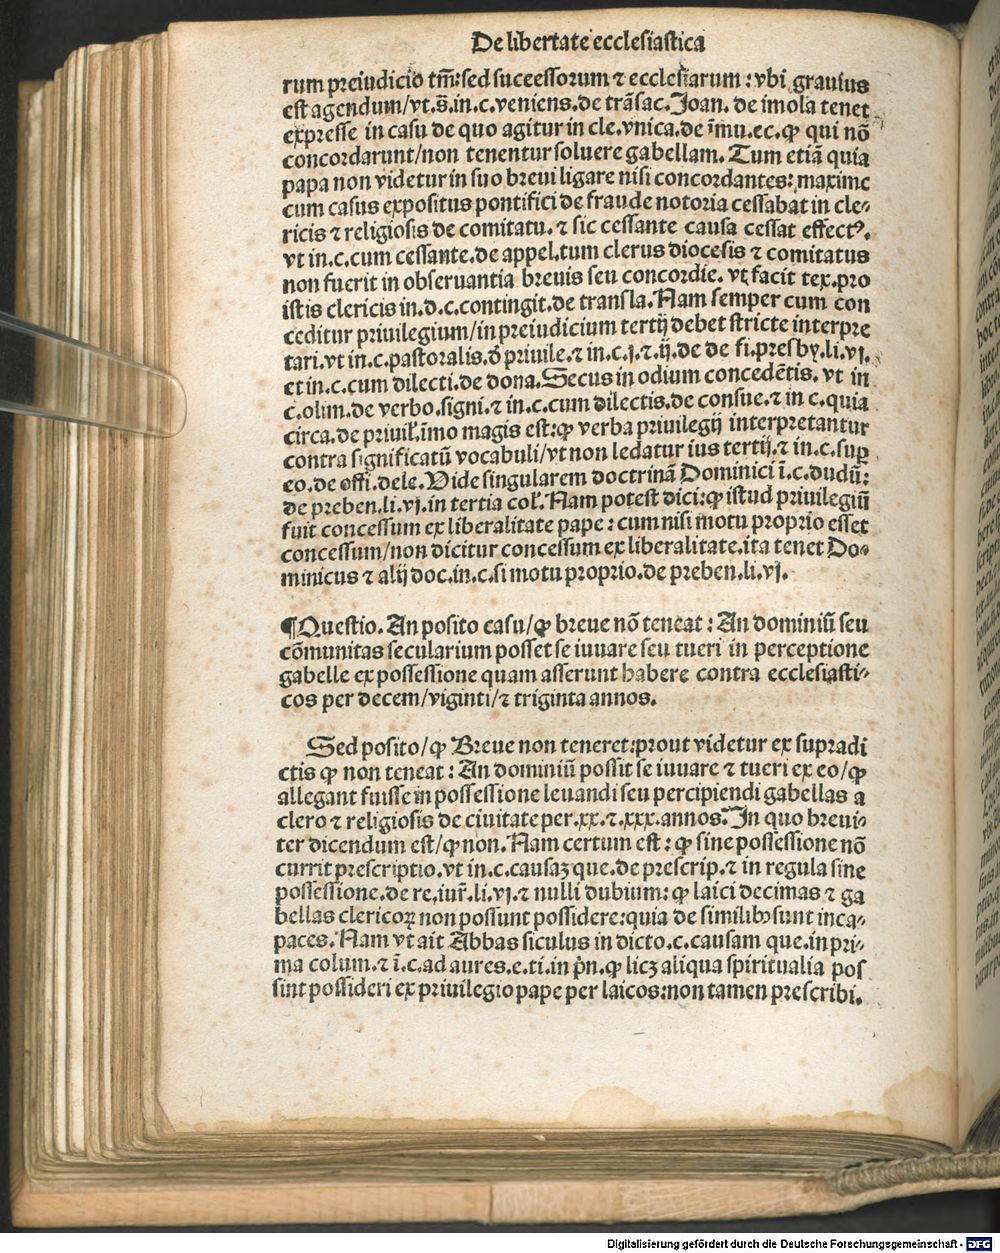 De libertate ecclesiastica
rum preiudicio tm̄:sed successorum ⁊ ecclesiarum : vbi grauius
est agendum/vt.s̄.in.c.veniens.de trāsac.Joan. de imola tenet
expresse in casu de quo agitur in cle.vnica.de īmu.ec.ꝙ qui nō
concordarunt/non tenentur soluere gabellam. Tum etiā quia
papa non videtur in suo breui ligare nisi concordantes: maxime
cum casus expositus pontifici de fraude notoria cessabat in cle⸗
ricis ⁊ religiosis de comitatu. ⁊ sic cessante causa cessat effectꝰ.
vt in.c.cum cessante.de appel.tum clerus diocesis ⁊ comitatus
non fuerit in obseruantia breuis seu concordie. vt facit tex.pro
istis clericis in.d.c.contingit.de transla.Nam semper cum con
ceditur priuilegium/in preiudicium tertij debet stricte interpre
tari.vt in.c.pastoralis.ð priuile.⁊ in.c.j.⁊.ij.de de fi.presby.li.vj.
et in.c.cum dilecti.de dona.Secus in odium concedētis. vt in
c.olim.de verbo.signi.⁊ in.c.cum dilectis.de consue.⁊ in c.quia
circa.de priuil̓.īmo magis est:ꝙ verba priuilegij interpretantur
contra significatū vocabuli/vt non ledatur ius tertij.⁊ in.c.suꝑ
eo.de offi.dele.Vide singularem doctrinā Dominici ī.c.dudū:
de preben.li.vj.in tertia col̓.Nam potest dici:ꝙ istud priuilegiū
fuit concessum ex liberalitate pape : cum nisi motu proprio esset
concessum/non dicitur concessum ex liberalitate.ita tenet Do⸗
minicus ⁊ alij doc.in.c.si motu proprio.de preben.li.vj.
¶Questio. An posito casu/ꝙ breue nō teneat : An dominiū seu
cōmunitas secularium posset se iuuare seu tueri in perceptione
gabelle ex possessione quam asserunt habere contra ecclesiasti⸗
cos per decem/viginti/⁊ triginta annos.
Sed posito/ꝙ Breue non teneret:prout videtur ex supradi
ctis ꝙ non teneat : An dominiū possit se iuuare ⁊ tueri ex eo/ꝙ
allegant fuisse in possessione leuandi seu percipiendi gabellas a
clero ⁊ religiosis de ciuitate per.xx.⁊.xxx.annos. In quo breui⸗
ter dicendum est/ꝙ non. Nam certum est : ꝙ sine possessione nō
currit prescriptio.vt in.c.causaꝫ que.de prescrip.⁊ in regula sine
possessione.de re.iur̄.li.vj.⁊ nulli dubium: ꝙ laici decimas ⁊ ga
bellas clericoꝝ non possunt possidere:quia de similibꝰ sunt inca⸗
paces. Nam vt ait Abbas siculus in dicto.c.causam que.in pri⸗
ma colum.⁊ ī.c.ad aures.e.ti.in pn̄.ꝙ licꝫ aliqua spiritualia pos
sint possideri ex priuilegio pape per laicos:non tamen prescribi.
Digitalisierung gefördert durch die Deutsche Forschungsgemeinschaft - DFG